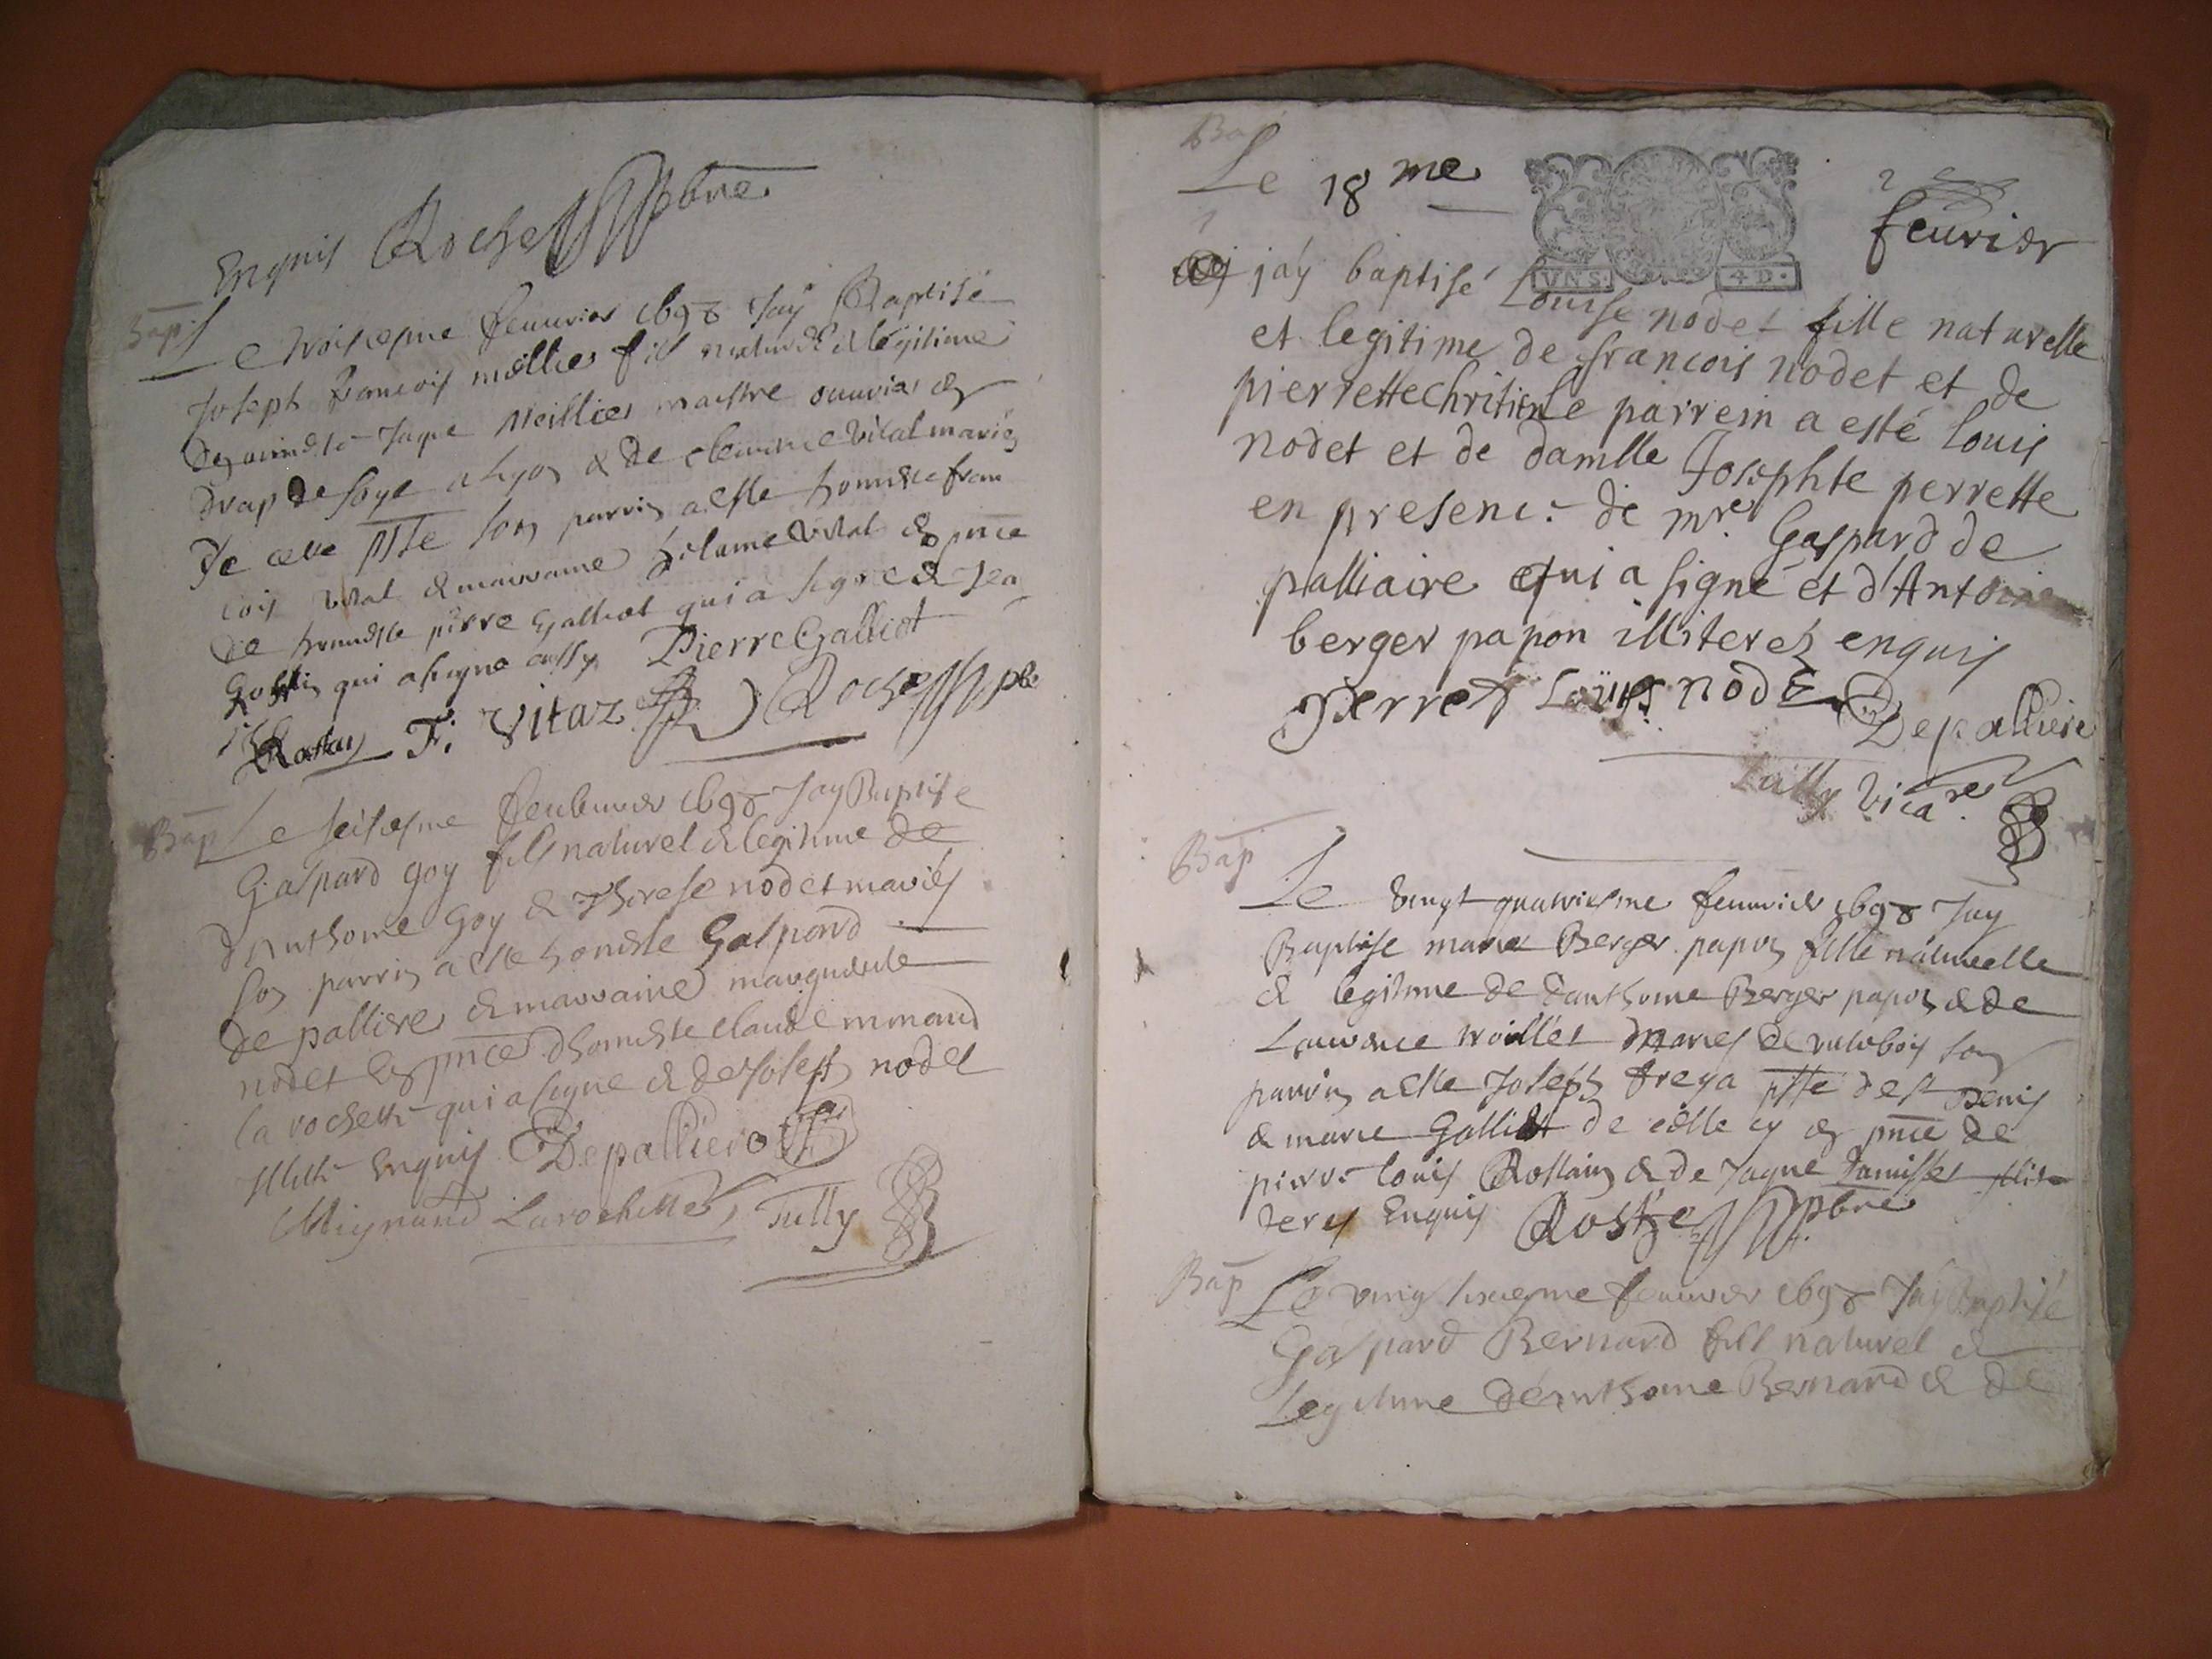 Enquis Roche pbre
Bap
Le troisiesme feuurier 1698 Jay Baptisé
Joseph francois millier fils naturel & legitime
de Jaque Meillier maistre ouurier en
drap de soye a lyon & de vital mariés
de cette psse son parrin a este honneste fran
cois vital & marraine vital en pnce
de honneste pierre Galliot qui a signe &
qui a signe aussy Pierre Galliot
F. Vitaz Roche pbre
Bap
Le seisiesme 1698 Jay Baptise
Gaspard goy fils naturel & legitime de
dAnthoine Goy & Therese nodet mariés
son parrin a este honeste Gaspard
de palliere & marraine marguerite
nodet En pnce dhonneste claude
la rochette qui a signe & de Joseph nodet
Illit. Enquis Depalliere
Mignand Larochette Tully
Bap
Le 18me
feurier
VNS. 4 D.
jáy baptisé Louise nodet fille naturelle
et legitime de francois nodet et de
pierrette chritien Le parrein a esté Louis
nodet et de damlle Josephte perrette
en presence de mre Gaspard de
palliaire qui a signé et d'Antoine
berger papon illiterez enquis
perret Loüis node Depalliere
vicare
Bap
Le vingt quatriesme feuurier 1698 Jay
Baptise marie Berger papon fille naturelle
& legitime de danthoine Berger papon & de
Laurence mariés de son
parrin a este Joseph psse de st Denis
& marie Galliot de celle cy en pnce de
pierre louis Rostain & de Jaque illite
rerés Enquis Roche pbre
Bap
Le vingt sixiesme feuurier 1698 Jáy Baptisé
Gaspard Bernard fils naturel &
Legitime de anthoine Bernard & de